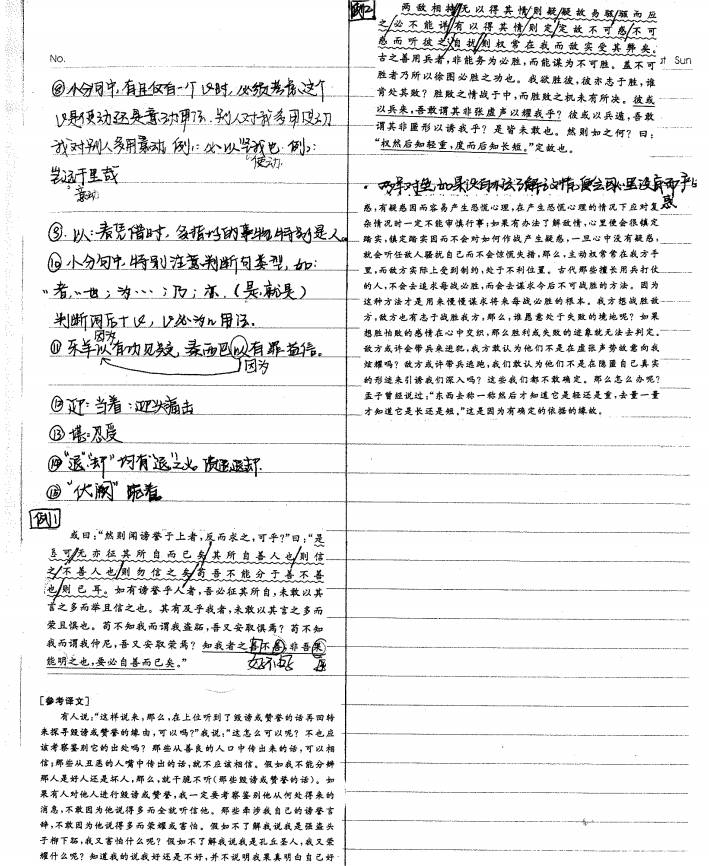 No.
⑧小分句中,有且仅有一个以时,必须考虑这个
以是使动还是意动用法.别人对我多用使动
我对别人多用意动.例1:必以
使动
例2:
岂远千里哉
意动
⑨.以:表凭借时,多指以的事物,特别是人。
⑩小分句中,特别注意判断句类型,如:
"者,…也;为…;乃;亦.(是,就是)
判断词后+以,以必为n用法.
因为
⑪乐羊以有功见疑,秦西巴以有罪益信。
因为
⑫迎:当着:迎头痛击
⑬堪:忍受
⑭"退""却"均有"退"之义
⑮"伏阙"跪着
例1
或曰:"然则闻谤誉于上者,反而求之,可乎?"曰:"是
恶可/无亦征其所自而已矣/其所自善人也/则信
之/不善人也/则勿信之矣/苟吾不能分于善不善
也/则已耳。如有谤誉乎人者,吾必征其所自,未敢以其
言之多而举且信之也。其有及乎我者,未敢以其言之多而
荣且惧也。苟不知我而谓我盗跖,吾又安取惧焉?苟不知
我而谓我仲尼,吾又安取荣焉?知我者之善不善,非吾果
能明之也,要必自善而已矣。"
好不好
[参考译文]
有人说:"这样说来,那么,在上位听到了毁谤或赞誉的话再回转
来探寻毁谤或赞誉的缘由,可以吗?"我说:"这怎么可以呢?不也应
该考察鉴别它的出处吗?那些从善良的人口中传出来的话,可以相
信;那些从丑恶的人嘴中传出的话,就不应该相信。假如我不能分辨
那人是好人还是坏人,那么,就干脆不听(那些毁谤或赞誉的话)。如
果有人对他人进行毁谤或赞誉,我一定要考察鉴别他从何处得来的
消息,不敢因为他说得多而全就听信他。那些牵涉我自己的谤誉言
辞,不敢因为他说得多而荣耀或害怕。假如不了解我说我是强盗头
子柳下跖,我又害怕什么呢?假如不了解我说我是孔丘圣人,我又荣
耀什么呢?知道我的说我好还是不好,并不说明我果真明白自己好
例2
两敌相持/无以得其情/则疑/疑故易骇/骇而应
之/必不能详/有以得其情/则定/定故不可惑/不可
惑而听彼之自扰/则权常在我而敌实受其弊矣。
古之善用兵者,非能务为必胜,而能谋为不可胜。盖不可
胜者乃所以徐图必胜之功也。我欲胜彼,彼亦志于胜,谁
肯处其败?胜败之情战于中,而胜败之机未有所决。彼或
以兵来,吾敢谓其非张虚声以耀我乎?彼或以兵遁,吾敢
谓其非匿形以诱我乎?是皆未敢也。然则如之何?曰:
"权然后知轻重,度而后知长短。"定故也。
Sun
惑,有疑惑因而容易产生恐慌心理,在产生恐慌心理的情况下应对复
杂情况时一定不能审慎行事;如果有办法了解敌情,心里便会很镇定
踏实,镇定踏实因而不会对如何作战产生疑惑,一旦心中没有疑惑,
就会听任敌人骚扰自己而不会惊慌失措,那么,主动权常常在我方手
里,而敌方实际上受到制约,处于不利位置。古代那些擅长用兵打仗
的人,不会去追求每战必胜,而会去谋求今后不可战胜的方法。因为
这种方法才是用来慢慢谋求将来每战必胜的根本。我方想战胜敌
方,敌方也有志于战胜我方,那么,谁愿意处于失败的境地呢?如果
想胜怕败的感情在心中交织,那么胜利或失败的迹象就无法去判定。
敌方或许会带兵来进犯,我方敢认为他们不是在虚张声势故意向我
炫耀吗?敌方或许带兵逃跑,我们敢认为他们不是在隐匿自己真实
的形迹来引诱我们深入吗?这些我们都不敢确定。那么怎么办呢?
孟子曾经说过:"东西去称一称然后才知道它是轻还是重,去量一量
才知道它是长还是短。"这是因为有确定的依据的缘故。